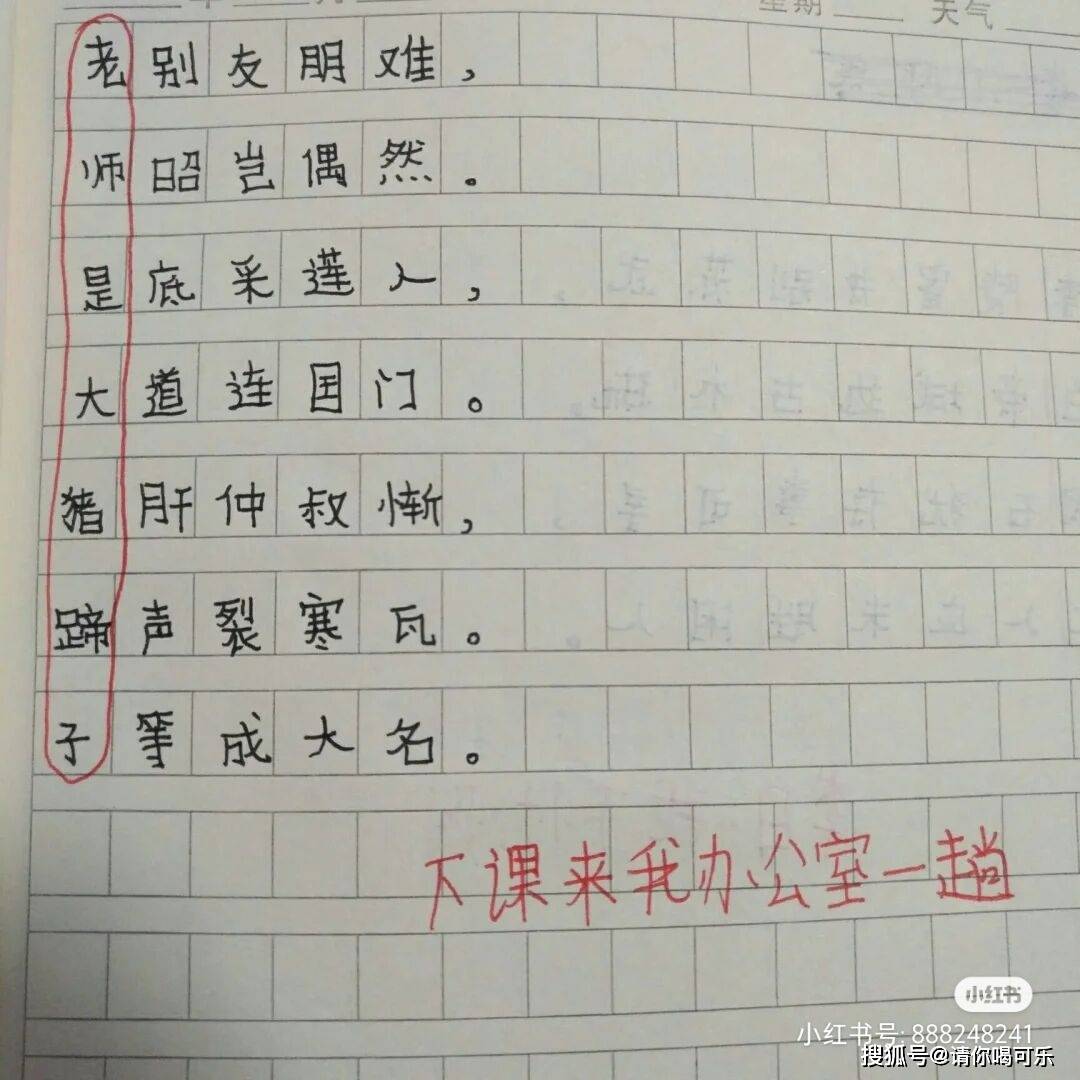 星期 天气
老别友朋难，
师昭岂偶然。
是底采莲人，
大道连国门。
猪肝仲叔惭，
蹄声裂寒瓦。
子等成大名。
下课来我办公室一趟
小红书
小红书号: 888248241
搜狐号@请你喝可乐